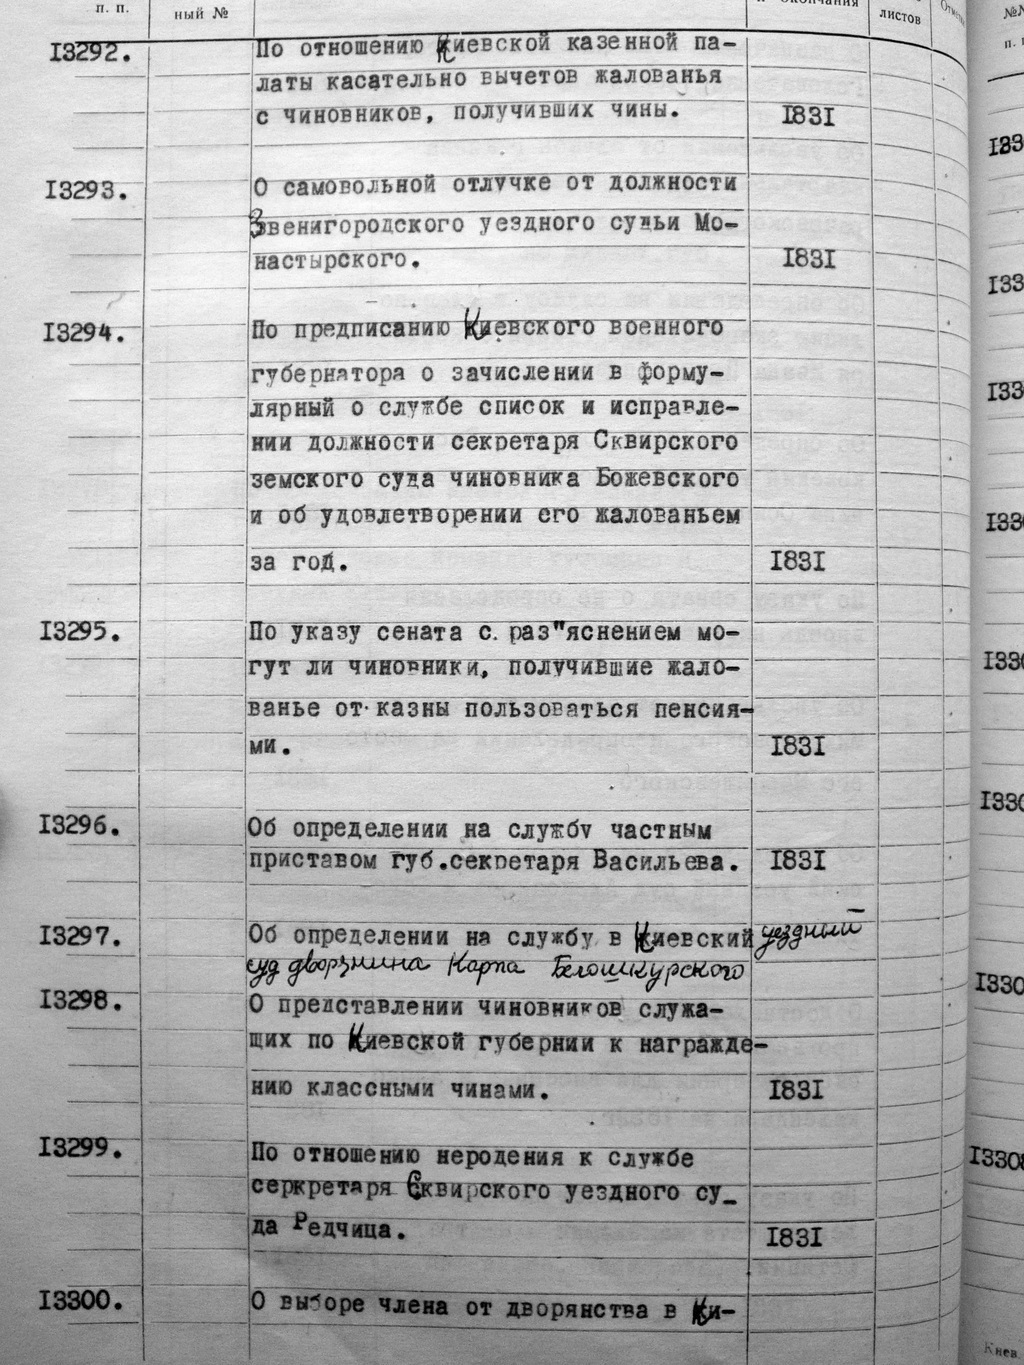 п. п.
ный №
окончания
листов
Отметка
№№
13292. По отношению Киевской казенной па-
латы касательно вычетов жалованья
с чиновников, получивших чины. 1831
13293. О самовольной отлучке от должности
Звенигородского уездного судьи Мо-
настырского. 1831
13294. По предписанию Киевского военного
губернатора о зачислении в форму-
лярный о службе список и исправле-
нии должности секретаря Сквирского
земского суда чиновника Божевского
и об удовлетворении его жалованьем
за год. 1831
13295. По указу сената с раз"яснением мо-
гут ли чиновники, получившие жало-
ванье от казны пользоваться пенсия-
ми. 1831
13296. Об определении на службу частным
приставом губ.секретаря Васильева. 1831
13297. Об определении на службу в Киевский уездный
суд дворянина Карпа Белошкурского
13298. О представлении чиновников служа-
щих по Киевской губернии к награжде-
нию классными чинами. 1831
13299. По отношению нероде­ния к службе
серкретаря Сквирского уездного су_
да Редчица. 1831
13300. О выборе члена от дворянства в Ки-